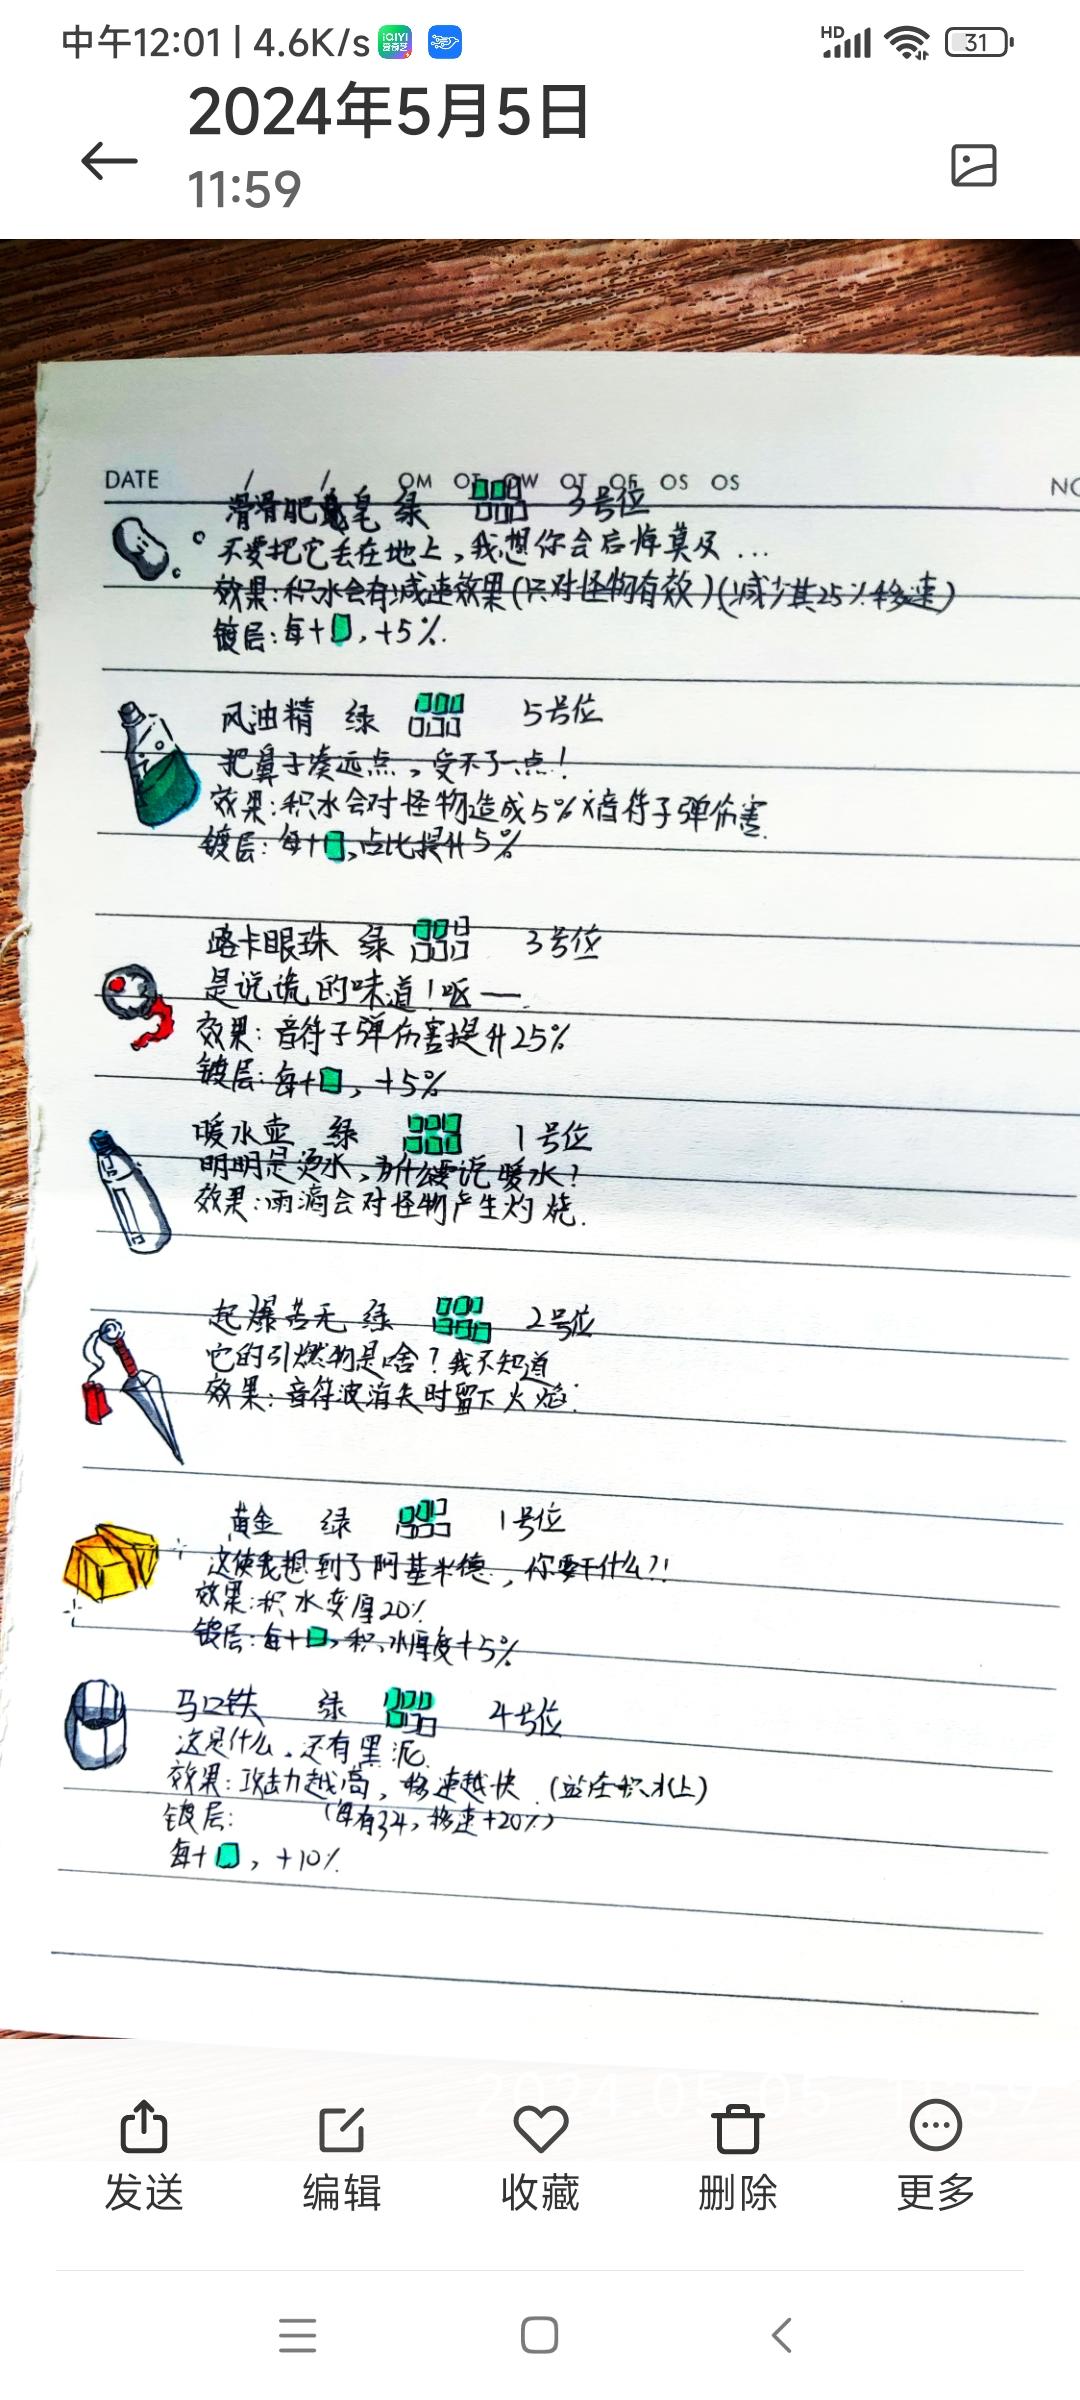 中午12:01 | 4.6K/s
HD
31
2024年5月5日
11:59
DATE / / OM OT OW OT OF OS OS NO
滑滑肥皂 绿 3号位
不要把它丢在地上，我想你会后悔莫及...
效果：积水会有减速效果(只对怪物有效)(减少其25%移速)
镀层：每+，+5%.
风油精 绿 5号位
把鼻子凑远点，受不了一点！
效果：积水会对怪物造成5%×音符子弹伤害.
镀层：每+，占比提升5%
路卡眼珠 绿 3号位
是说谎的味道！呕—
效果：音符子弹伤害提升25%
镀层：每+，+5%
暖水壶 绿 1号位
明明是烫水，为什么要说暖水？
效果：雨滴会对怪物产生灼烧.
起爆苦无 绿 2号位
它的引燃物是啥？我不知道
效果：音符波消失时留下火焰.
黄金 绿 1号位
这使我想到了阿基米德，你要干什么?!
效果：积水变厚20%
镀层：每+，积水厚度+5%
马口铁 绿 4号位
这是什么，还有黑泥.
效果：攻击力越高，移速越快.(站在积水上)
镀层： (每有34，移速+20%)
每+，+10%
发送 编辑 收藏 删除 更多